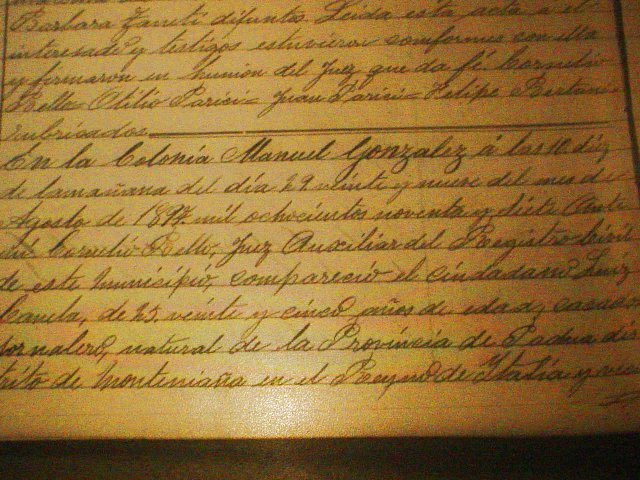 Barbara Zaneti difuntos. Leida esta acta a el
interesado y testigos estuvieron comformes con ella
y firmaron en hunion del Juez que da fé. Cornelio
Belle= Otilio Parici= Juan Parici= Felipe Bertani=
rubricados
En la Colonia Manuel Gonzalez á las 10 diez
de la mañana del dia 29 veinte y nueve del mes de
Agosto de 1897. mil ochocientos noventa y siete Ante
mi Cornelio Belle, Juez Auxiliar del Registro Civil
de este municipio, comparecio el ciudadano Luiz
Canela, de 25. veinte y cinco años de edad, casado
jornalero, natural de la Provincia de Padua dis
trito de Monteniaña en el Reyno de Italia y veci